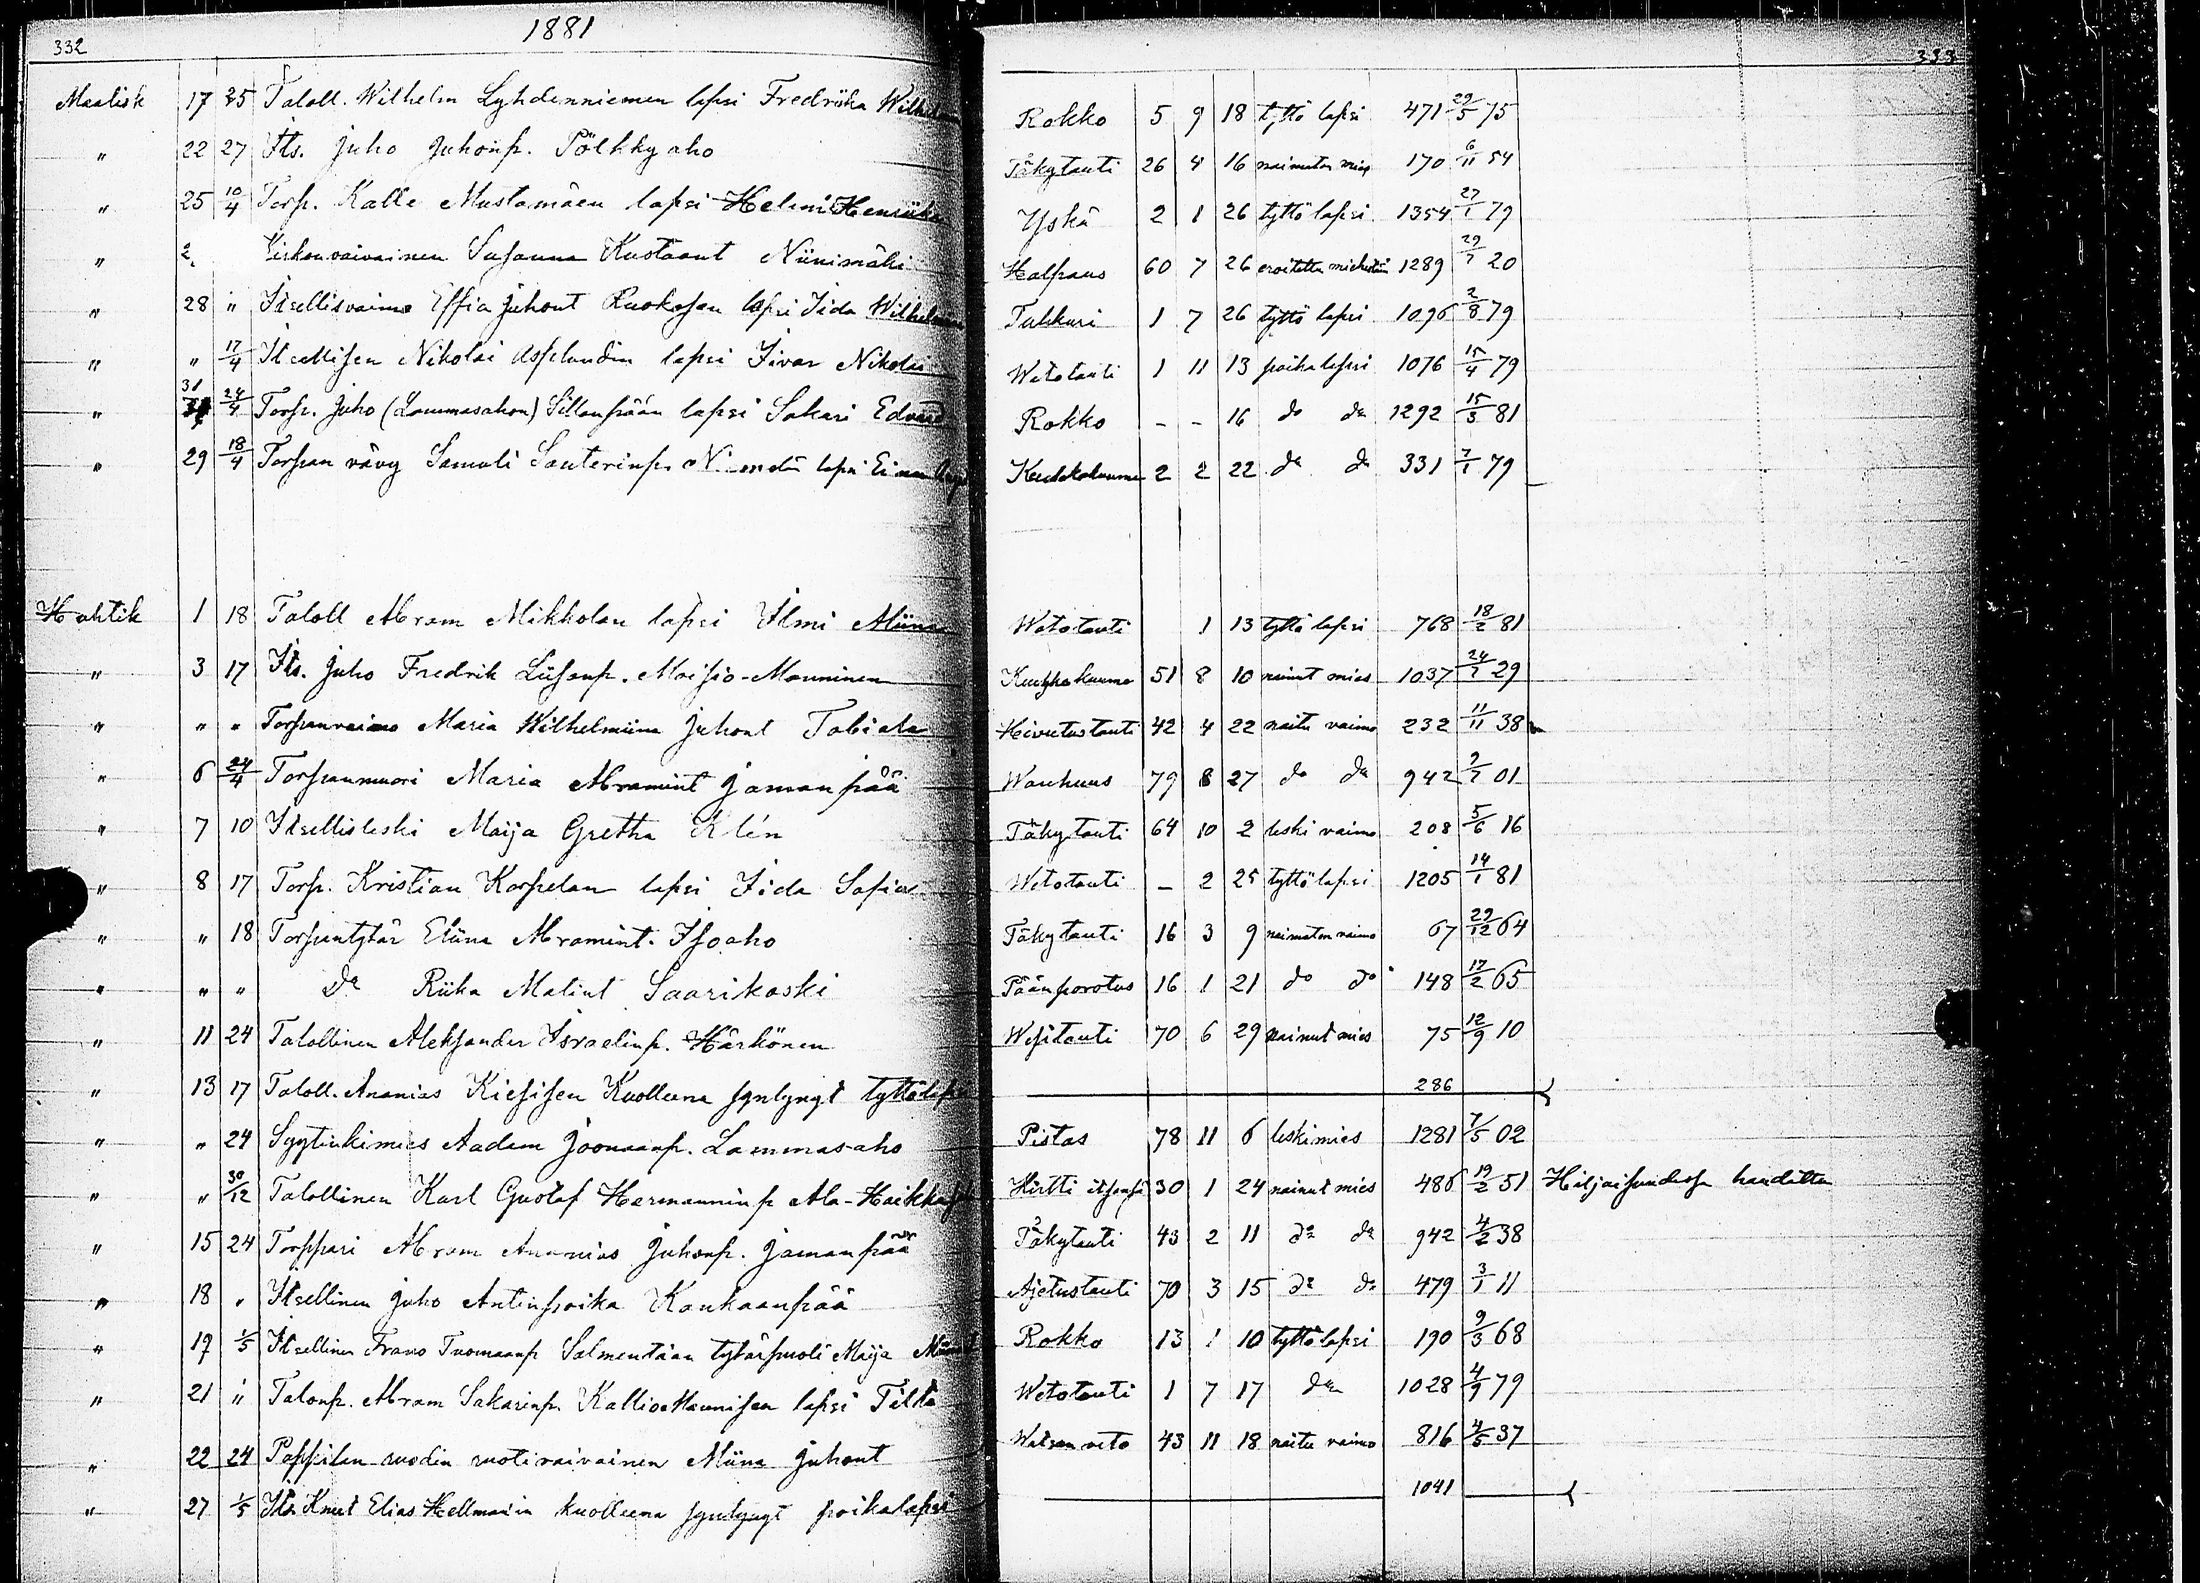 332
1881
Maalisk 17 25 Taloll. Wilhelm Lyhdenniemen lapsi Fredriika
" 22 27 Its. Juho Juhonp. Pölkkyaho
" 25 10/4 Torp. Kalle Mustamäen lapsi Helmi Henriika
" Kirkonvaivainen Susanna Kustaant Niinimäki
" 28 " Itsellisvaimo Effia Juhont Ruokosen lapsi Iida Wilhelmiina
" " 17/4 Itsellisen Nikolai Asplundin lapsi Iivar Nikolai
" 31 24/4 Torp. Juho (Lammasahon) Sillanpään lapsi Sakari Edvard
" 29 18/4 Torpan vävy Samuli Santerinp. lapsi
Huhtik 1 18 Taloll Abram Mikkolan lapsi Ilmi Miina
" 3 17 Its. Juho Fredrik Liisanp. Moisio-Manninen
" " " Torpanvaimo Maria Wilhelmiina Juhont Tabiala
" 6 24/4 Torpanmuori Maria Abramint Jamanpää
" 7 10 Itsellisleski Maija Gretha Klén
" 8 17 Torp. Kristian Korpelan lapsi Iida Sofia
" " 18 Torpantytär Eliina Abramint. Isoaho
" " " do Riika Matint Saarikoski
" 11 24 Talollinen Aleksander Israelinp. Härkönen
" 13 17 Taloll. Ananias Kiesisen Kuolleena syntynyt tyttölapsi
" " 24 Syytinkimies Aadam Joonaanp. Lammasaho
" " 30/12 Talollinen Karl Gustaf Hermanninp Ala-
" 15 24 Torppari Abram Ananias Juhonp. Jamanpää
" 18 " Itsellinen Juho Antinpoika Kankaanpää
" 19 1/5 Itsellinen Frans Tuomaanp Salmentaan tytärpuoli Maija
" 21 " Talonp. Abram Sakarinp. Kalliomaunisen lapsi Tilta
" 22 24 Pappilan ruodin ruotivaivainen Miina Juhont
" 27 1/5 Its. Knut Elias Hellman'in kuolleena syntynyt poikalapsi
333
Rokko 5 9 18 tyttö lapsi 471 29/5 75
Täkytauti 26 4 16 naimaton mies 170 6/11 54
Yskä 2 1 26 tyttö lapsi 1354 27/1 79
Halpaus 60 7 26 eroitettu miehestään 1289 29/7 20
Tuhkuri 1 7 26 tyttö lapsi 1096 2/8 79
Wetotauti 1 11 13 poikalapsi 1076 15/4 79
Rokko - - 16 do do 1292 15/3 81
Keuhkokuume 2 2 22 do do 331 7/1 79
Wetotauti 1 13 tyttö lapsi 768 18/2 81
Keuhkokuume 51 8 10 nainut mies 1037 24/7 29
Hivutustauti 42 4 22 naitu vaimo 232 11/11 38
Wanhuus 79 8 27 do do 942 9/7 01
Täkytauti 64 10 2 leski vaimo 208 5/6 16
Wetotauti - 2 25 tyttölapsi 1205 14/1 81
Täkytauti 16 3 9 naimaton vaimo 67 29/12 64
Päänporotus 16 1 21 do do 148 17/2 65
Wesitauti 70 6 29 nainut mies 75 12/9 10
286
Pistos 78 11 6 leskimies 1281 7/5 02
Hirtti itsensä 30 1 24 nainut mies 486 19/2 51 Hiljaisuudessa haudattu
Täkytauti 43 2 11 do do 942 4/2 38
Ajetustauti 70 3 15 do do 479 3/1 11
Rokko 13 1 10 tyttölapsi 190 9/3 68
Wetotauti 1 7 17 do 1028 4/9 79
Watsan veto 43 11 18 naitu vaimo 816 4/5 37
1041